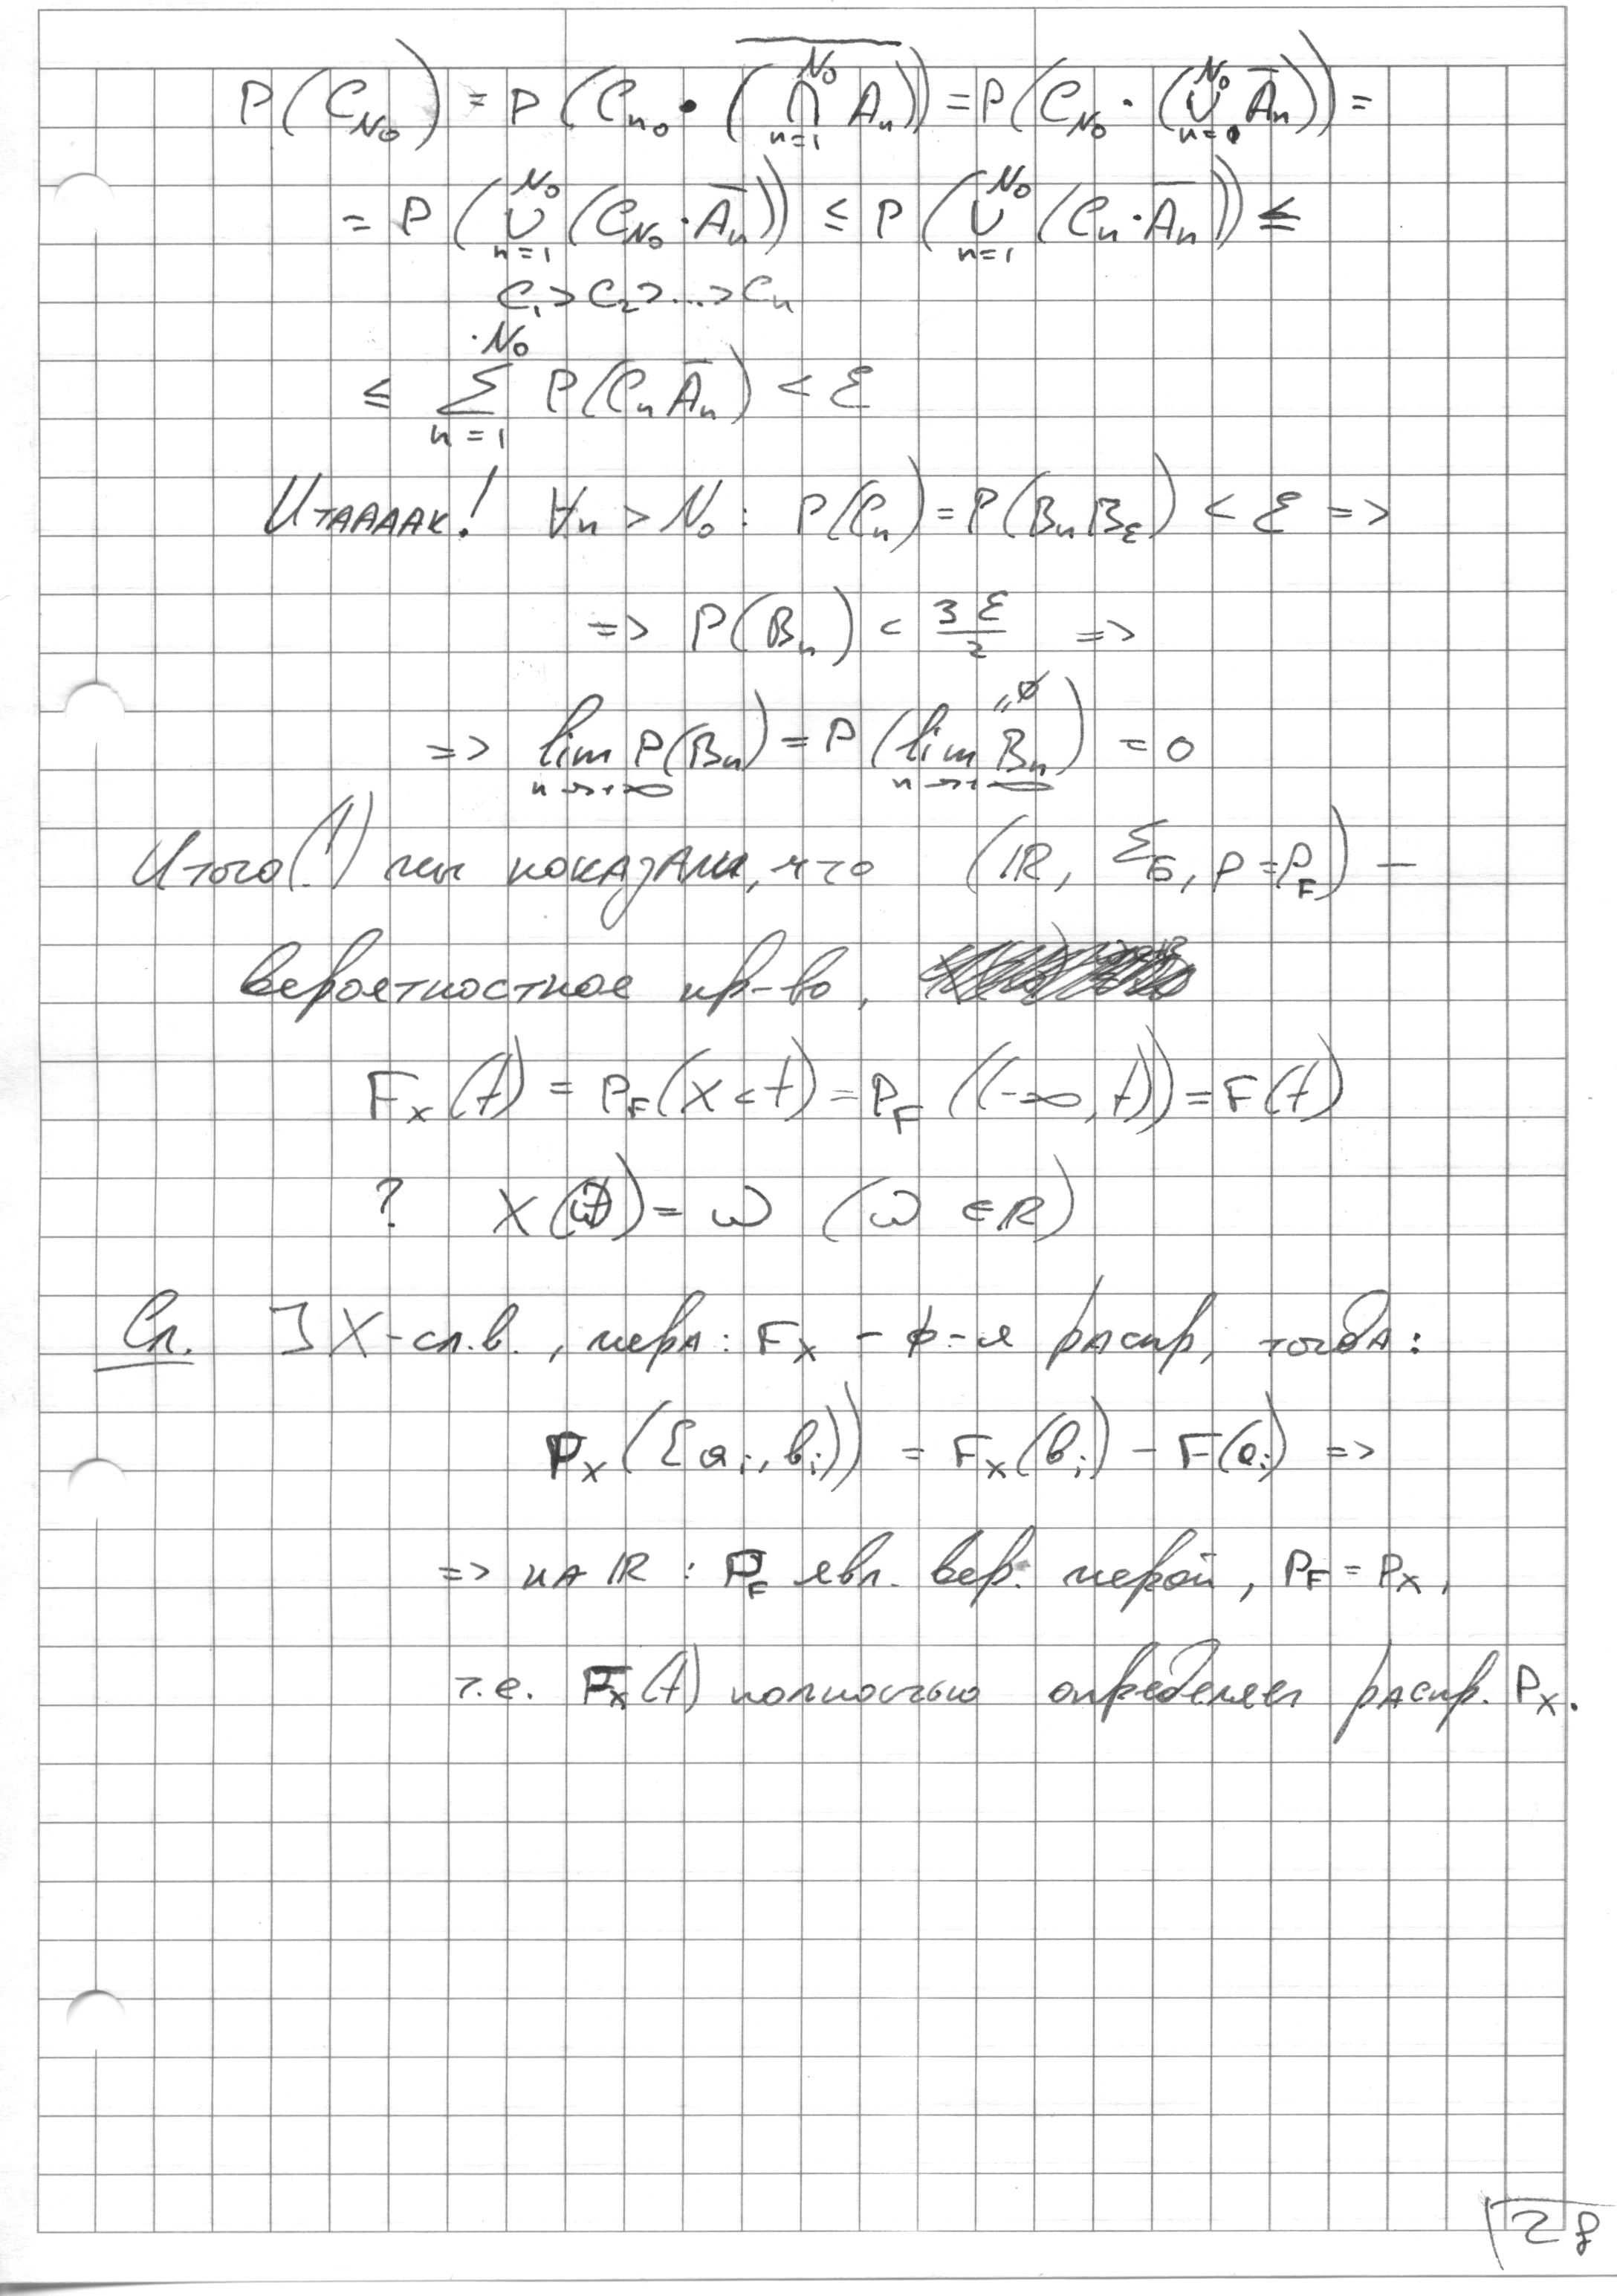 P(C_{N₀}) = P(C_{n₀} · \overline{(⋂_{n=1}^{N₀} A_n)}) = P(C_{N₀} · (⋃_{n=1}^{N₀} \overline{A_n})) =
= P(⋃_{n=1}^{N₀} (C_{N₀} · \overline{A_n})) ≤ P(⋃_{n=1}^{N₀} (C_n · \overline{A_n})) ≤
C₁ > C₂ > ... > C_n
≤ ∑_{n=1}^{N₀} P(C_n \overline{A_n}) < ε
Итааааак! ∀n > N₀ : P(C_n) = P(B_n B_ε) < ε =>
=> P(B_n) < 3ε/2 =>
=> lim_{n→+∞} P(B_n) = P(lim_{n→+∞} B_n) = 0
"∅
Итого(!) мы показали, что (ℝ, Σ_Б, P = P_F) –
вероятностное пр-во,
F_X(t) = P_F(X < t) = P_F((-∞, t)) = F(t)
? X(ω) = ω (ω ∈ ℝ)
Сл. ∃ X – сл.в., мера: F_X – ф-я распр, тогда:
P_X([a_i, b_i)) = F_X(b_i) – F(a_i) =>
=> на ℝ : P_F явл. вер. мерой, P_F = P_X,
т.е. F_X(t) полностью определяет распр. P_X.
28